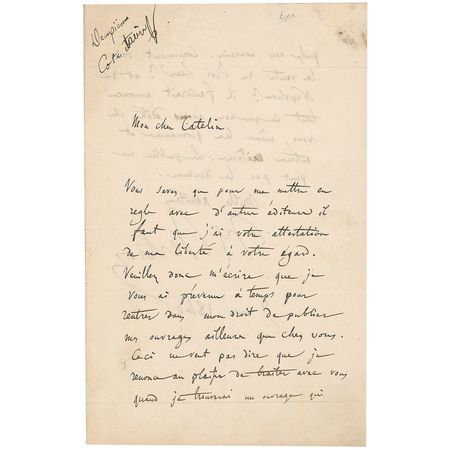 Deuxième
Mon cher Catelin
Vous savez que pour me mettre en
regle avec d'autre éditeurs il
faut que j'ai votre attestation
de ma liberté à votre égard.
Veuillez donc m'écrire que je
vous ai prévenu à temps pour
rentrer dans mon droit de publier
mes ouvrages ailleurs que chez vous.
Ceci ne veut pas dire que je
renonce au plaisir de traiter avec vous
quand je trouverai un ouvrage qui